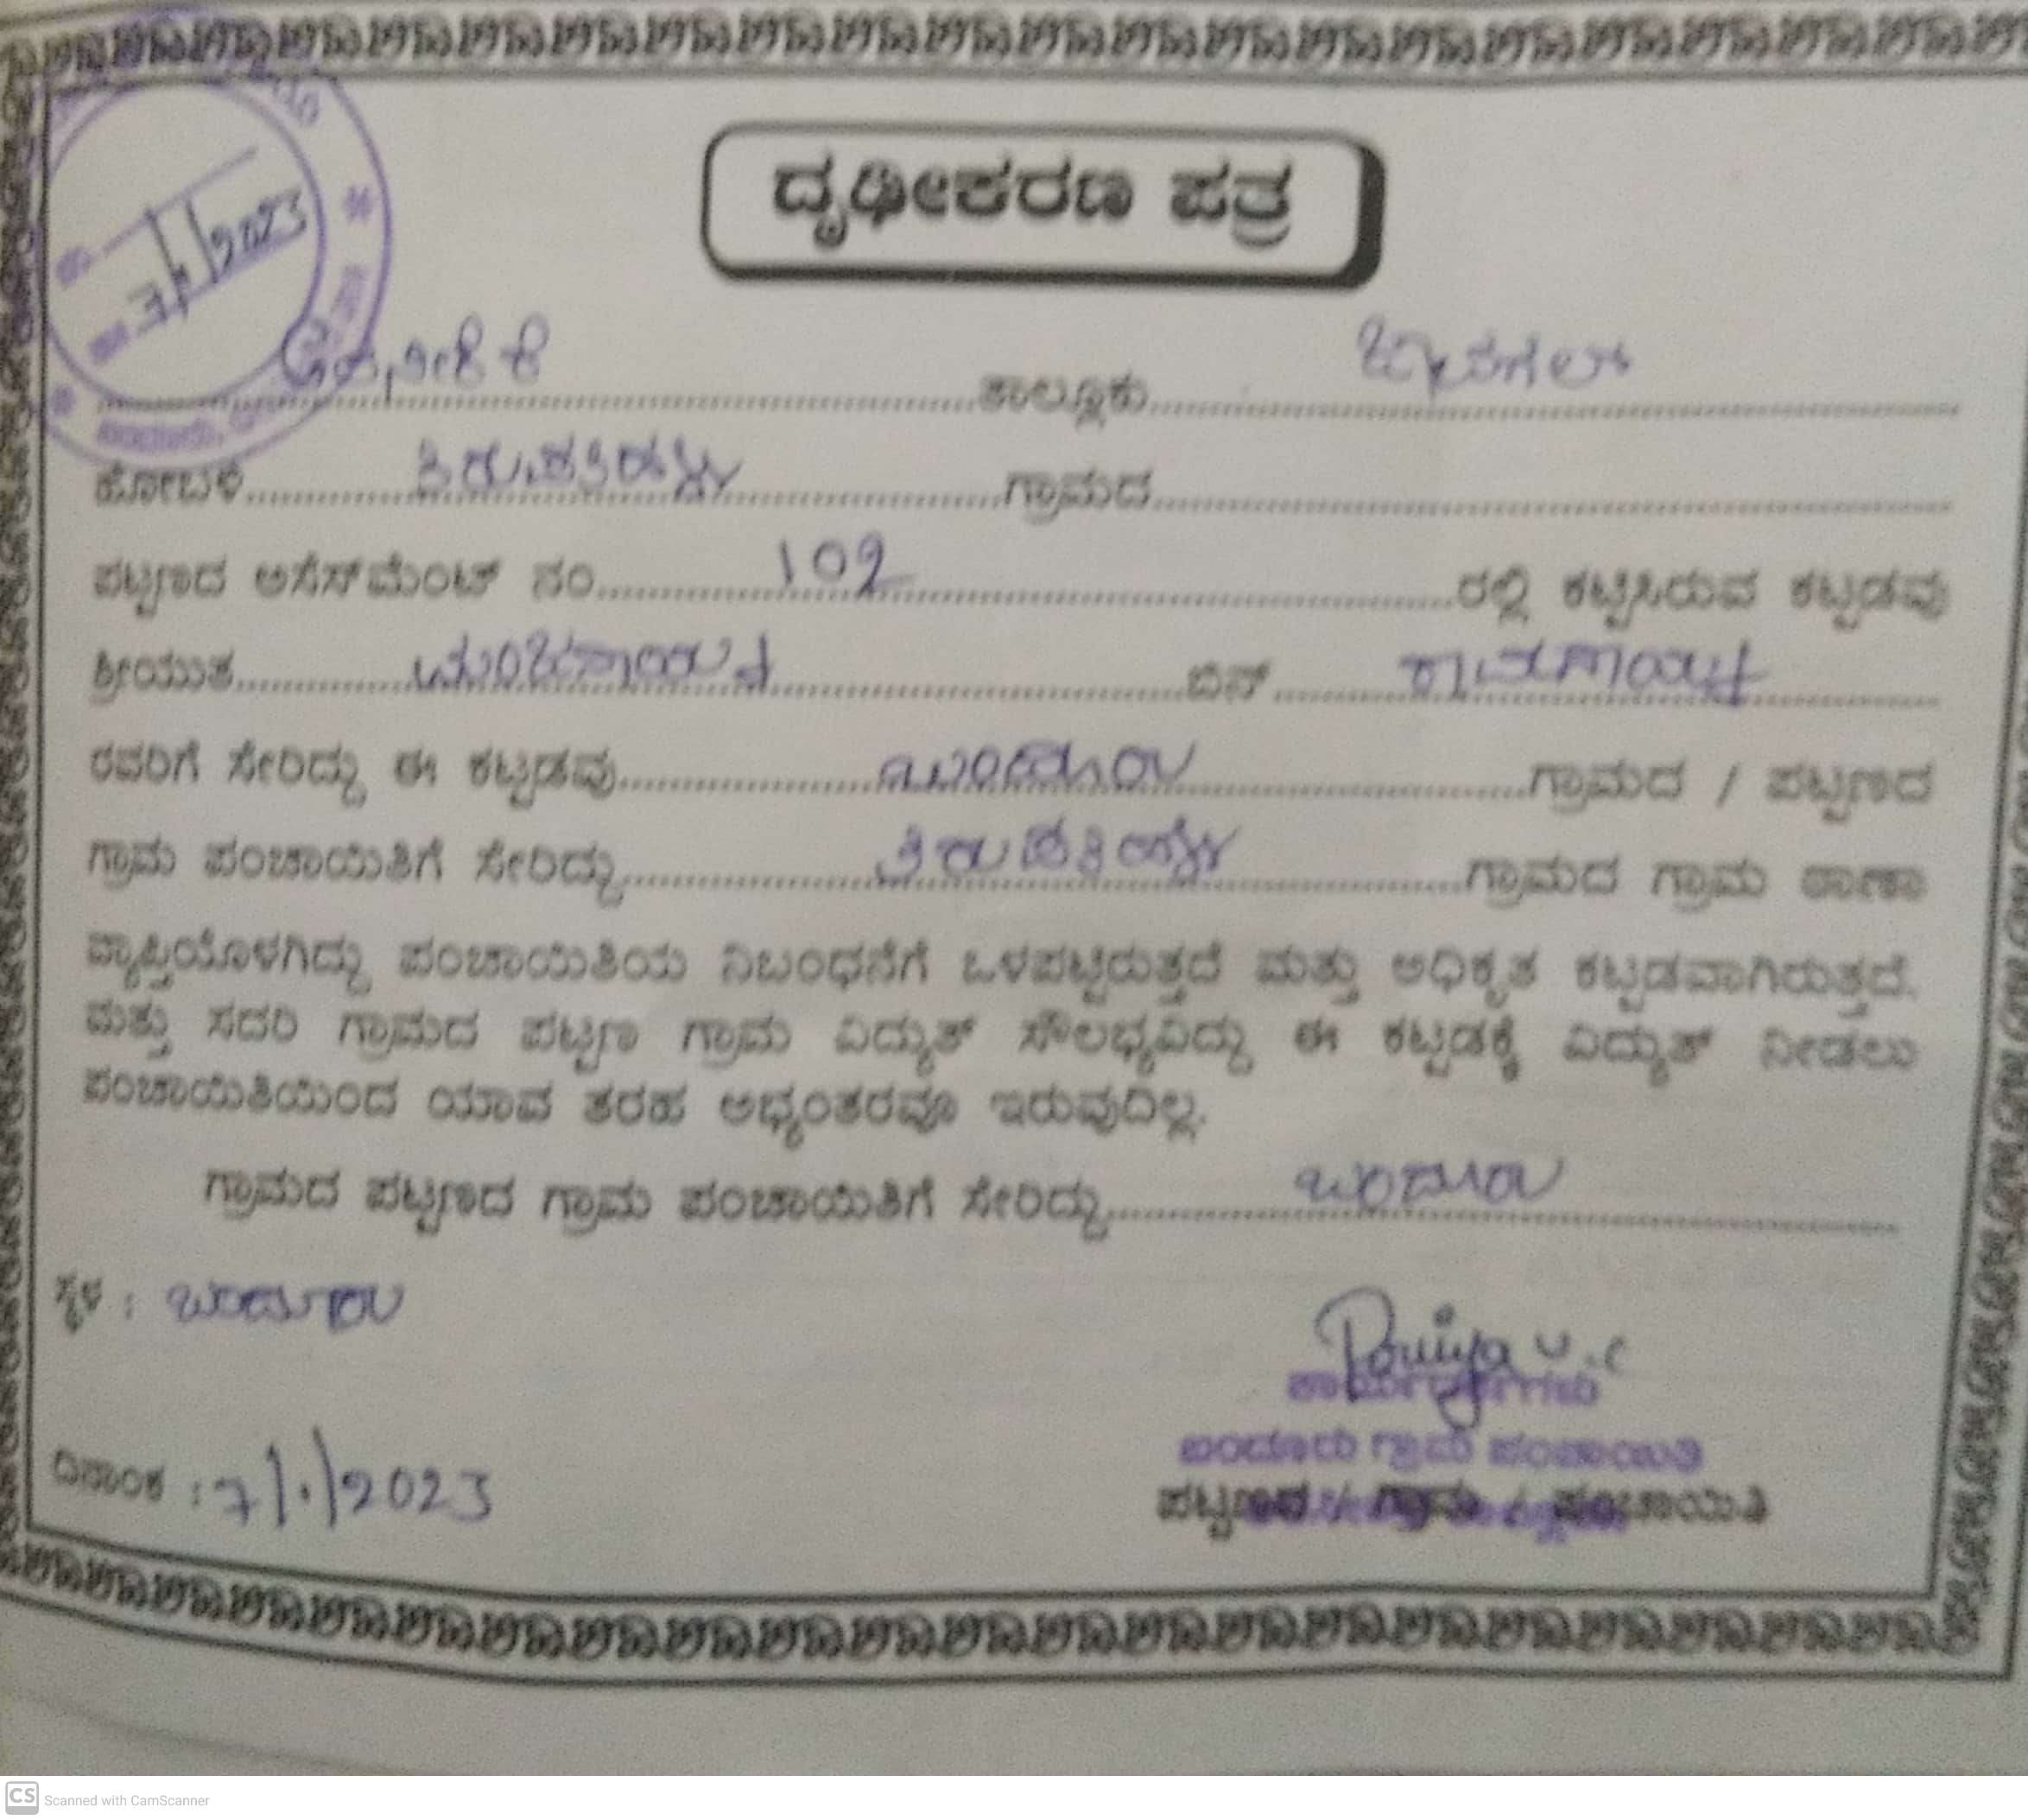 ದೃಢೀಕರಣ ಪತ್ರ
7/1/2023
ಅರಸೀಕೆರೆ ತಾಲ್ಲೂಕು
ಹೋಬಳಿ ತಿರುಪತಿಹಳ್ಳಿ ಗ್ರಾಮದ
ಪಟ್ಟಣದ ಅಸೆಸ್‌ಮೆಂಟ್ ನಂ 102 ರಲ್ಲಿ ಕಟ್ಟಿಸಿರುವ ಕಟ್ಟಡವು
ಶ್ರೀಯುತ ಬಿನ್
ರವರಿಗೆ ಸೇರಿದ್ದು ಈ ಕಟ್ಟಡವು ಬಂದೂರು ಗ್ರಾಮದ / ಪಟ್ಟಣದ
ಗ್ರಾಮ ಪಂಚಾಯಿತಿಗೆ ಸೇರಿದ್ದು ತಿರುಪತಿಹಳ್ಳಿ ಗ್ರಾಮದ ಗ್ರಾಮ ಠಾಣಾ
ವ್ಯಾಪ್ತಿಯೊಳಗಿದ್ದು ಪಂಚಾಯಿತಿಯ ನಿಬಂಧನೆಗೆ ಒಳಪಟ್ಟಿರುತ್ತದೆ ಮತ್ತು ಅಧಿಕೃತ ಕಟ್ಟಡವಾಗಿರುತ್ತದೆ.
ಮತ್ತು ಸದರಿ ಗ್ರಾಮದ ಪಟ್ಟಣ ಗ್ರಾಮ ವಿದ್ಯುತ್ ಸೌಲಭ್ಯವಿದ್ದು ಈ ಕಟ್ಟಡಕ್ಕೆ ವಿದ್ಯುತ್ ನೀಡಲು
ಪಂಚಾಯಿತಿಯಿಂದ ಯಾವ ತರಹ ಅಭ್ಯಂತರವೂ ಇರುವುದಿಲ್ಲ.
ಗ್ರಾಮದ ಪಟ್ಟಣದ ಗ್ರಾಮ ಪಂಚಾಯಿತಿಗೆ ಸೇರಿದ್ದು ಬಂದೂರು
ಸ್ಥಳ : ಬಂದೂರು
ಬಂದೂರು ಗ್ರಾಮ ಪಂಚಾಯಿತಿ
ದಿನಾಂಕ : 7/1/2023
ಪಟ್ಟಣದ / ಗ್ರಾಮ / ಪಂಚಾಯಿತಿ
CS Scanned with CamScanner